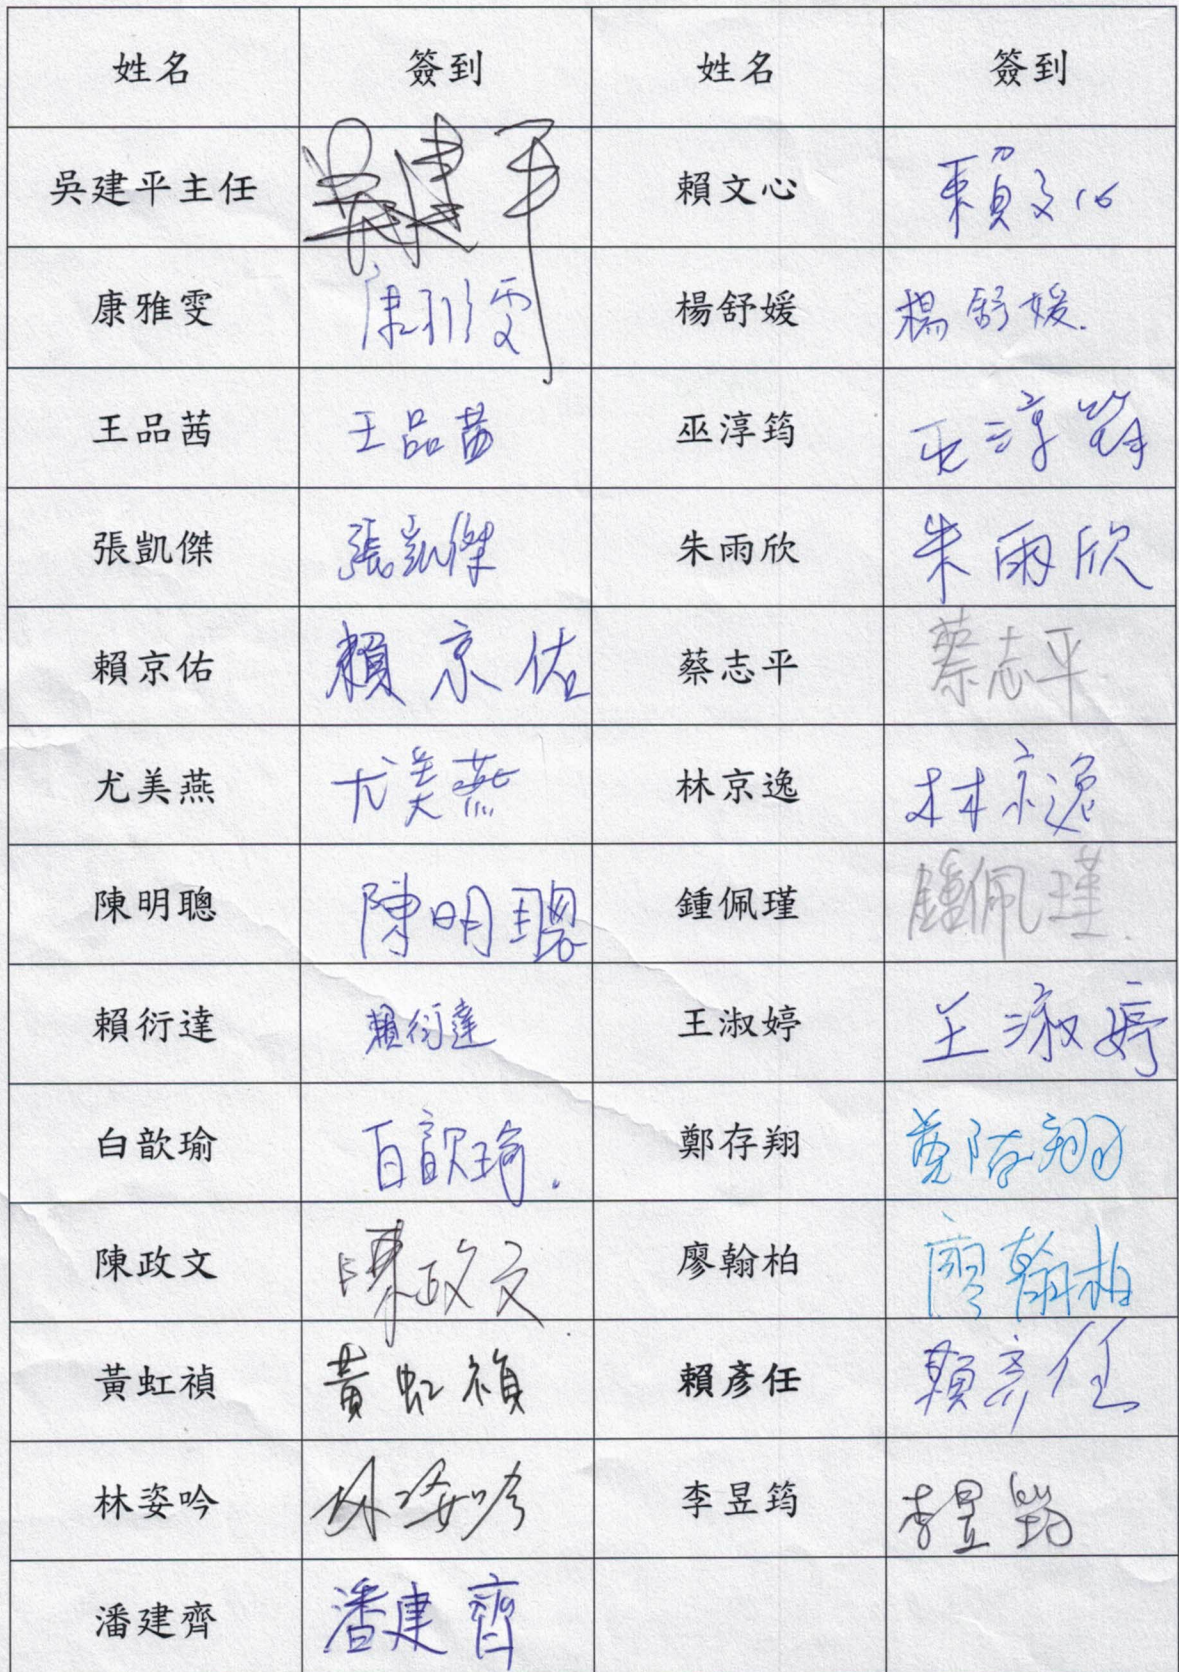 姓名 簽到 姓名 簽到
吳建平主任 吳建平 賴文心 賴文心
康雅雯 康雅雯 楊舒媛 楊舒媛.
王品茜 王品茜 巫淳筠 巫淳筠
張凱傑 張凱傑 朱雨欣 朱雨欣
賴京佑 賴京佑 蔡志平 蔡志平
尤美燕 尤美燕 林京逸 林京逸
陳明聰 陳明聰 鍾佩瑾 鍾佩瑾.
賴衍達 賴衍達 王淑婷 王淑婷
白歆瑜 白歆瑜. 鄭存翔 鄭存翔
陳政文 陳政文 廖翰柏 廖翰柏
黃虹禎 黃虹禎 賴彥任 賴彥任
林姿吟 林姿吟 李昱筠 李昱筠
潘建齊 潘建齊